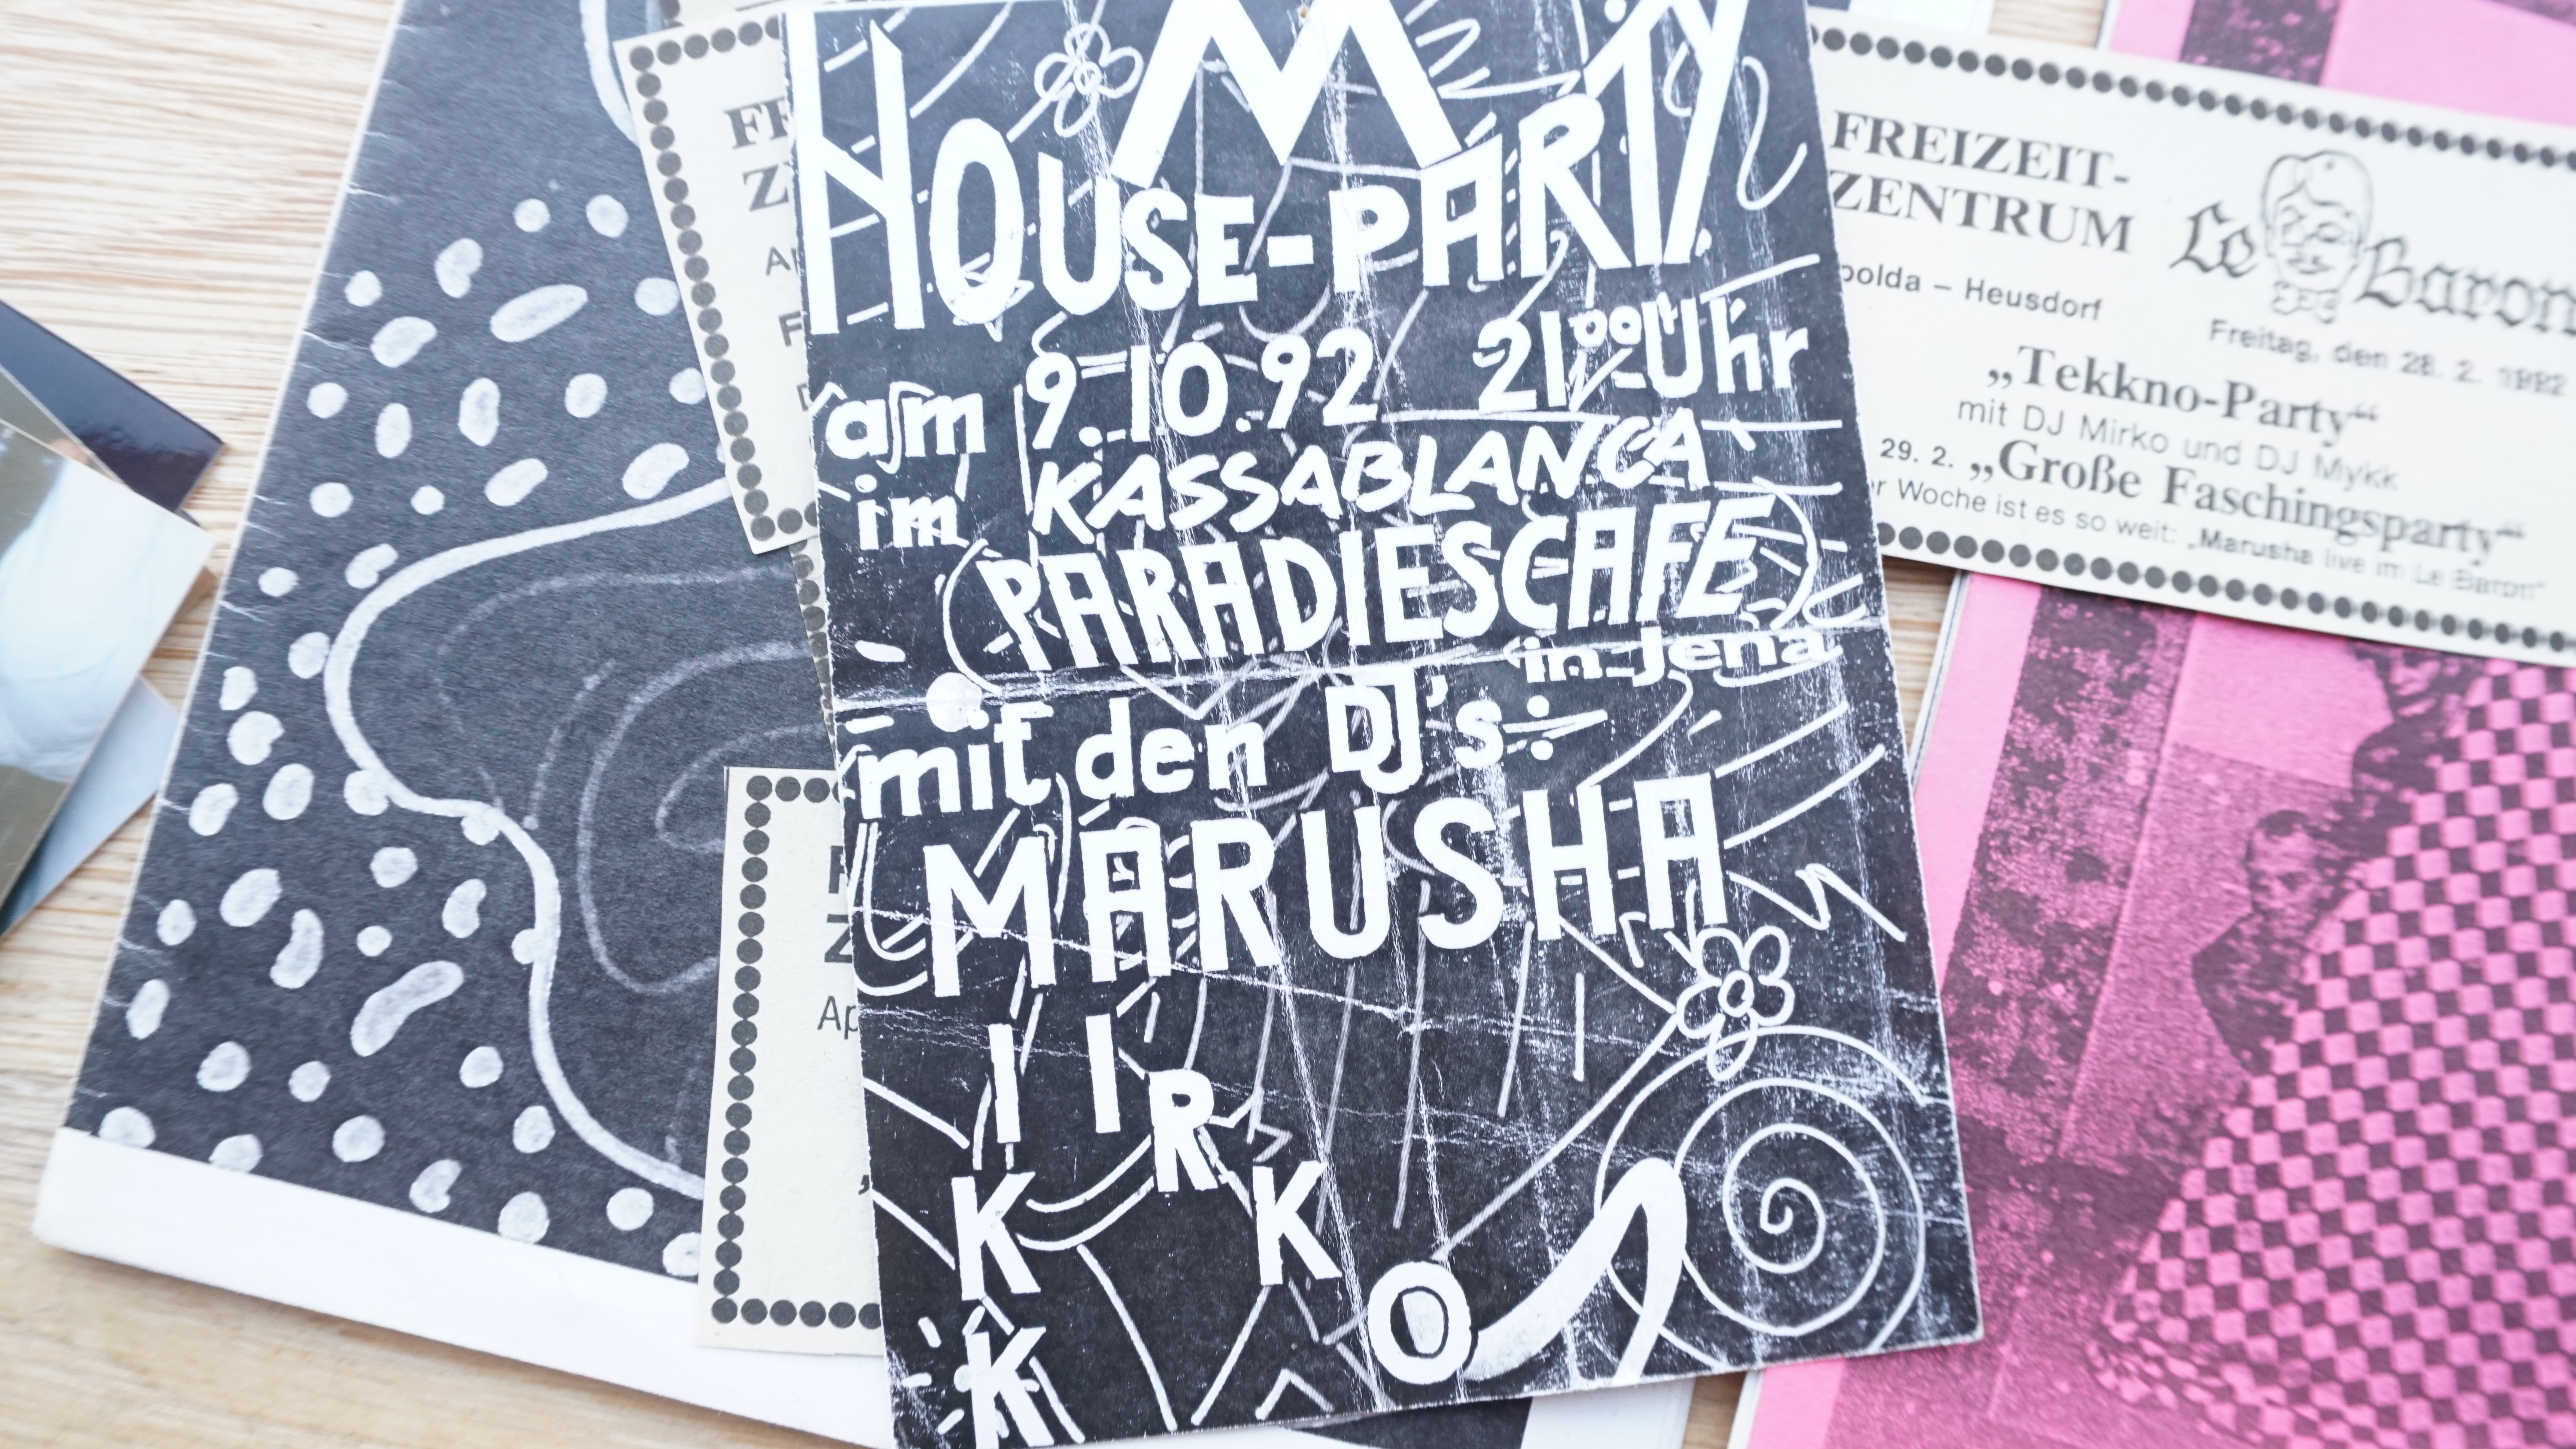 M
HOUSE-PARTY
am 9.10.92 21⁰⁰ Uhr
im KASSABLANCA
(PARADIESCAFE)
in Jena
mit den DJ's:
MARUSHA
MIRKO
MIKK
FREIZEIT-
ZENTRUM
Le Baron
polda – Heusdorf
Freitag, den 28. 2. 1992
„Tekkno-Party“
mit DJ Mirko und DJ Mykk
29. 2. „Große Faschingsparty“
r Woche ist es so weit: „Marusha live im Le Baron“
FR
Z
Ap
F
Z
Ap